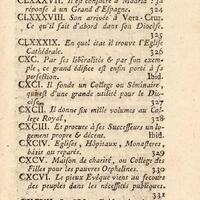 CLXXXVII. Il est consacré à Madrid
réponse à un Grand d'Espagne. 321
CLXXXVIII. Son arrivée à Vera-Crux.
Ce qu'il fait d'abord dans son Diocèse.
325
CLXXXIX. En quel état il trouve l'Eglise
Cathédrale. 326
CXC. Par ses libéralités & par son exem-
ple, ce grand édifice est enfin porté à sa
perfection. Ibid.
CXCI. Il fonde un College ou Séminaire,
qui est d'une grande utilité pour le Dio-
cèse. 327
CXCII. Il donne six mille volumes au Col-
lege Royal, 328
CXCIII. Et procure à ses Successeurs un lo-
gement propre & décent. Ibid.
CXCIV. Eglises, Hôpitaux, Monasteres,
bâtis ou reparés. 329
CXCV. Maison de charité, ou College des
Filles pour les pauvres Orphelines. 330
CXCVI. Le pieux Evêque vient au secours
des peuples dans les nécessités publiques.
331